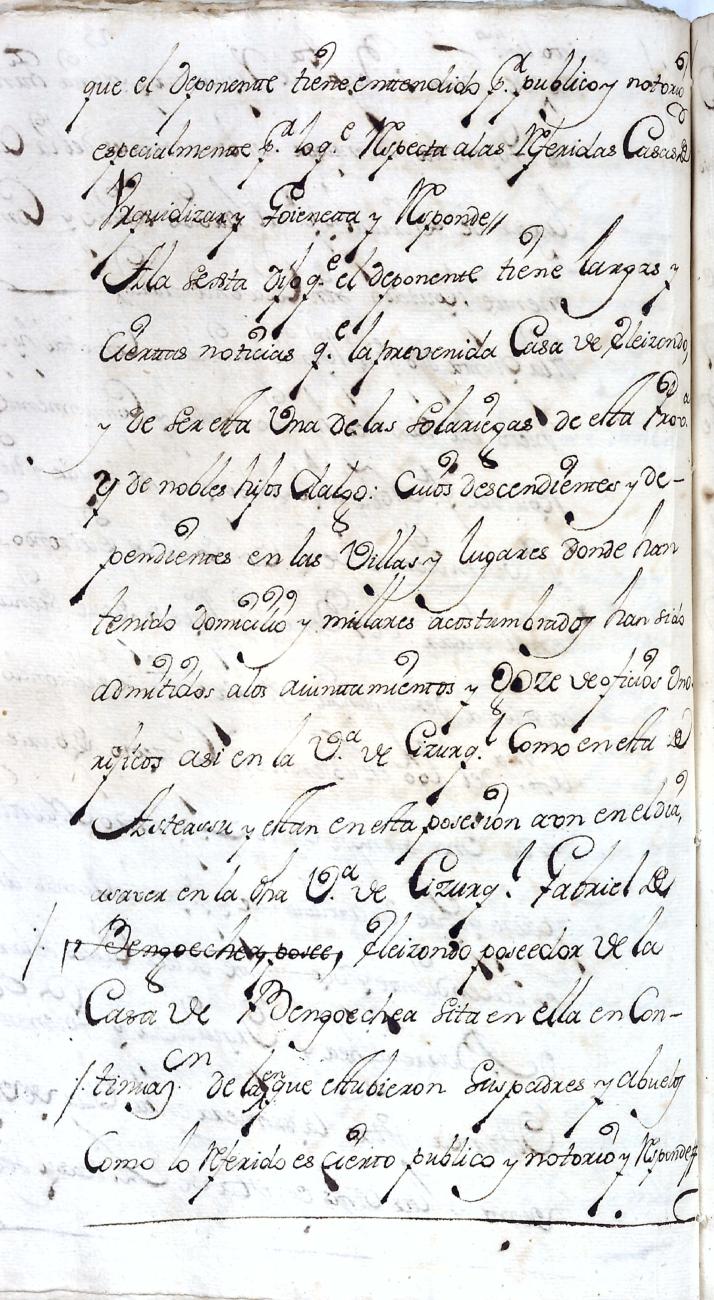 que el deponente tiene entendido p.r publico y notorio
especialmente p.r lo q.e Respecta alas Referidas Casas de
Urquidizar y Goieneta y Responde//
Ala sexta dijo q.e el deponente tiene largas y
Ciertas noticias q.e la prevenida Casa de Eleizondo,
y de ser esta Una de las solariegas de esta Prov.a
y de nobles hijos Dalgo: cuios descendientes y de-
pendientes en las Villas y lugares donde han
tenido domicilio y millares acostumbrados han sido
admitidos alos aiuntamientos y goze de oficios ono
rificos asi en la V.a de Cizurq.l Como en esta de
Asteassu y estan en esta posesion aun en el dia,
asaver en la dha V.a de Cizurq.l Gabriel de
Bengoechea posee, Eleizondo poseedor de la
Casa de Bengoechea sita en ella en Con-
tinua.on de la en que estubieron sus padres y abuelos
Como lo Referido es cierto publico y notorio y Responde//